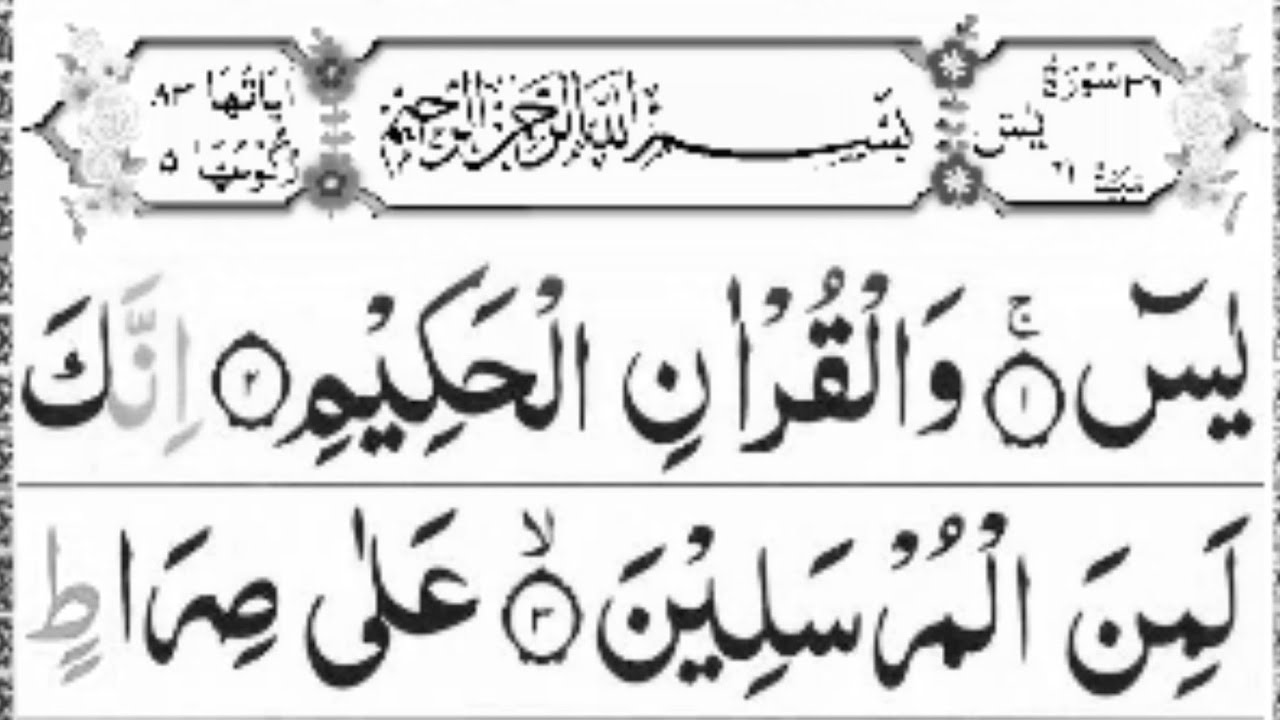 ٣٦ سُوْرَةُ
يٰسٓ
مَكِّيَّةٌ ٤١
بِسْمِ اللّٰهِ الرَّحْمٰنِ الرَّحِيْمِ
اٰيَاتُهَا ٨٣
رُكُوْعَاتُهَا ٥
يٰسٓ ۚ ١ وَالْقُرْاٰنِ الْحَكِيْمِ ٢ اِنَّكَ
لَمِنَ الْمُرْسَلِيْنَ ۙ ٣ عَلٰى صِرَاطٍ